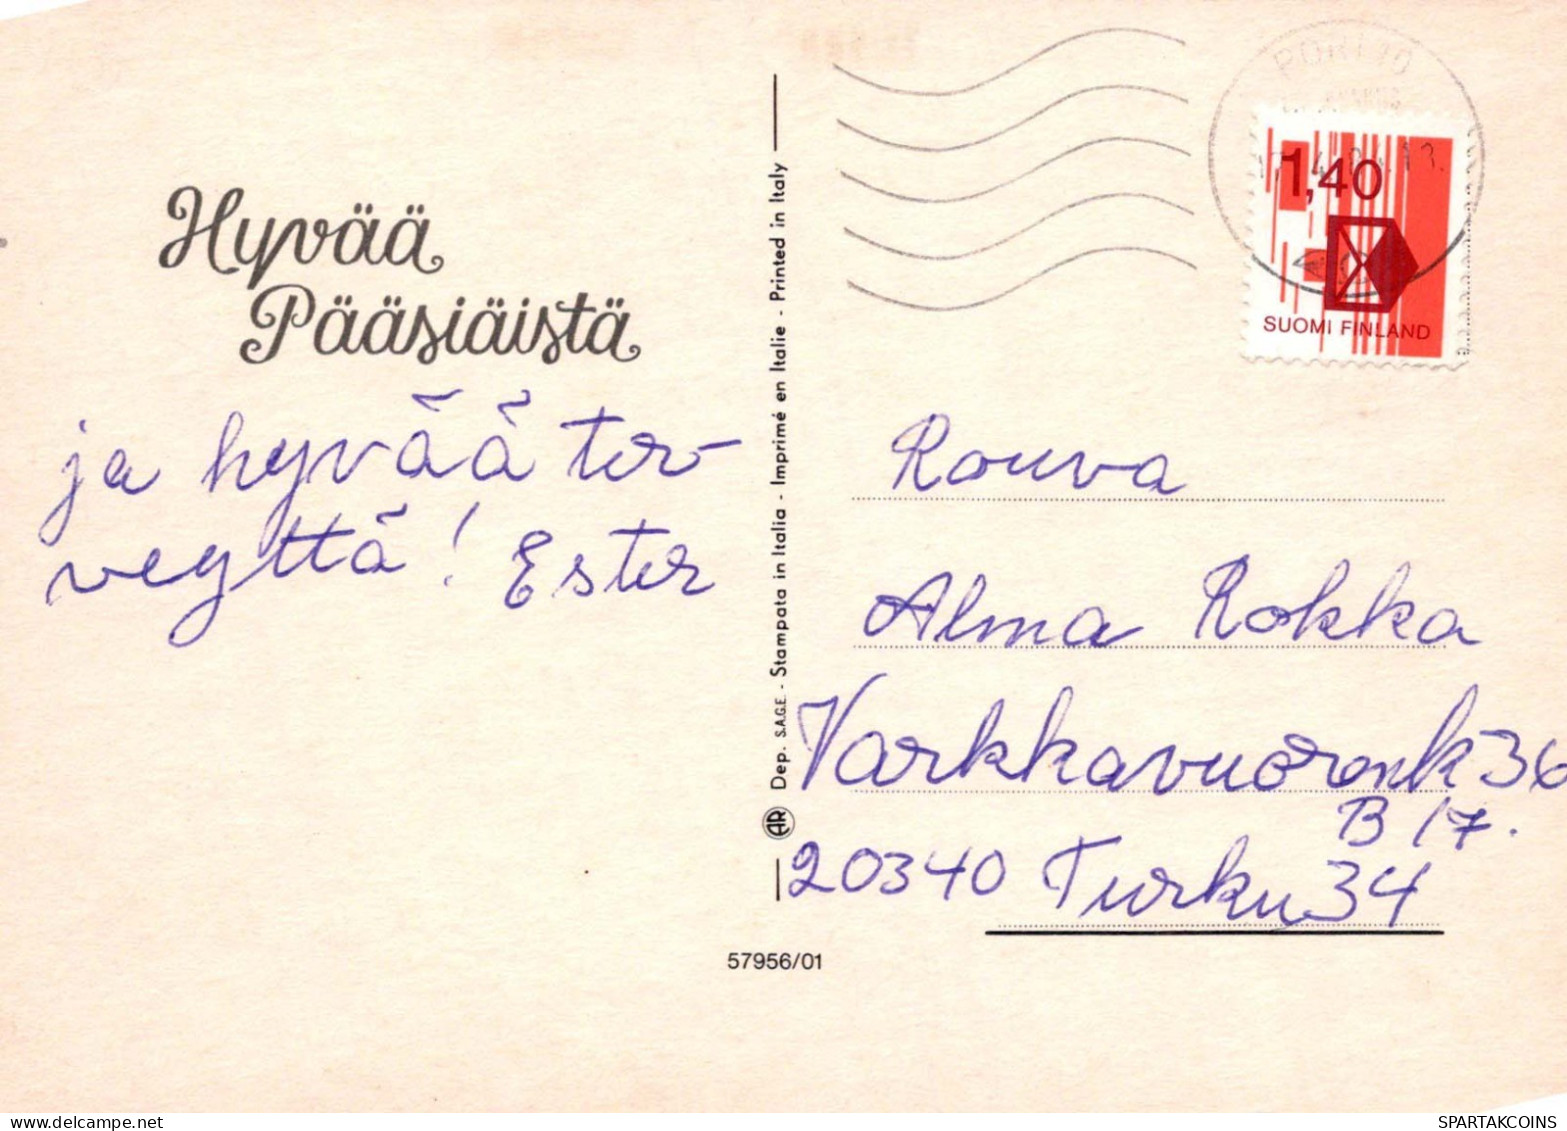 Hyvää
Pääsiäistä
ja hyvää ter-
veyttä! Ester
Dep. S.A.G.E. - Stampata in Italia - Imprimé en Italie - Printed in Italy
AR
57956/01
PORI 10
1,40
SUOMI FINLAND
Rouva
Alma Rokka
Varkkavuorenk 36
B 17.
20340 Turku 34
SPARTAKCOINS